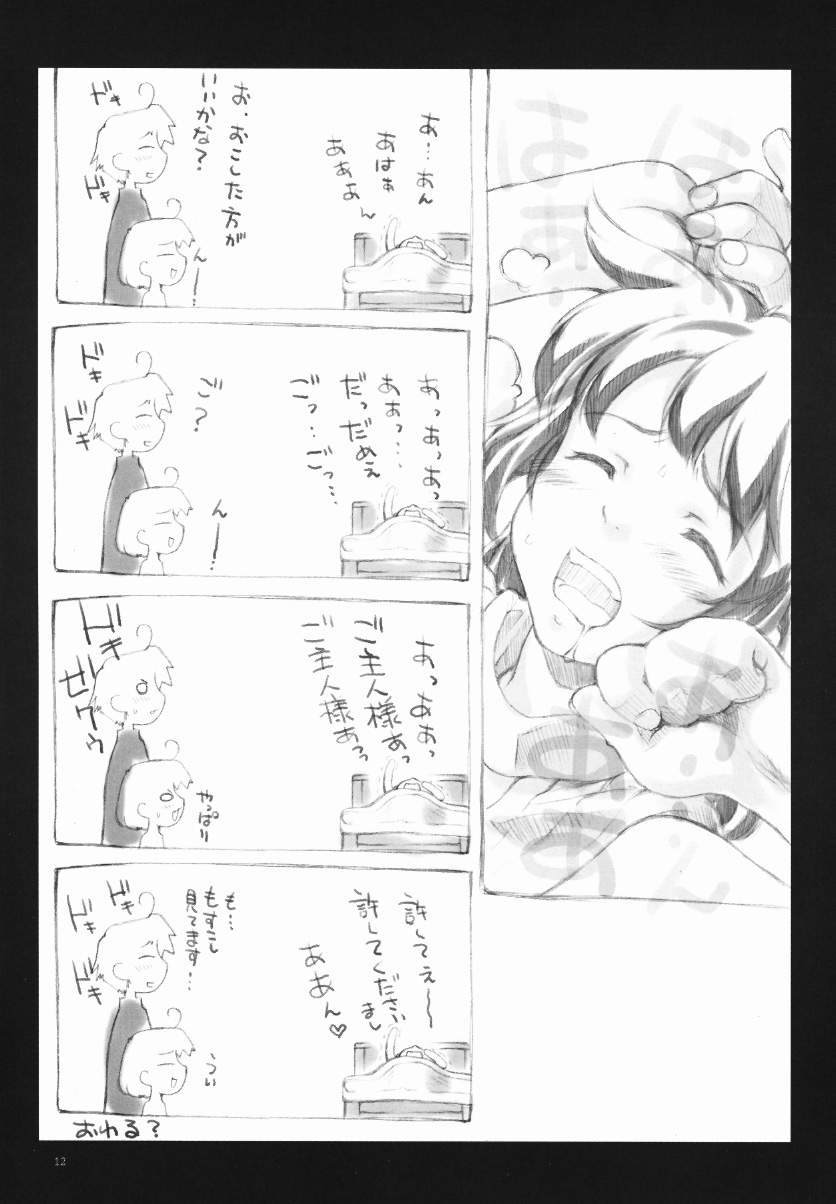 はぁ
はぁ
あ…あん
あはぁ
あぁぁん
お、おこした方が
いいかな?
んー…
ドキ
ドキ
あっあっあっ
あぁっ…
だっだめぇ
ごっ…ごっ…
ご?
んー…
ドキ
ドキ
あっああっ
ご主人様あっ
ご主人様あっ
やっぱり
ドキ
許してぇ〜〜
許してください
まし
ああん♡
も…
もすこし
見てます…
うい
ドキ
ドキ
ドキ
おわる?
12